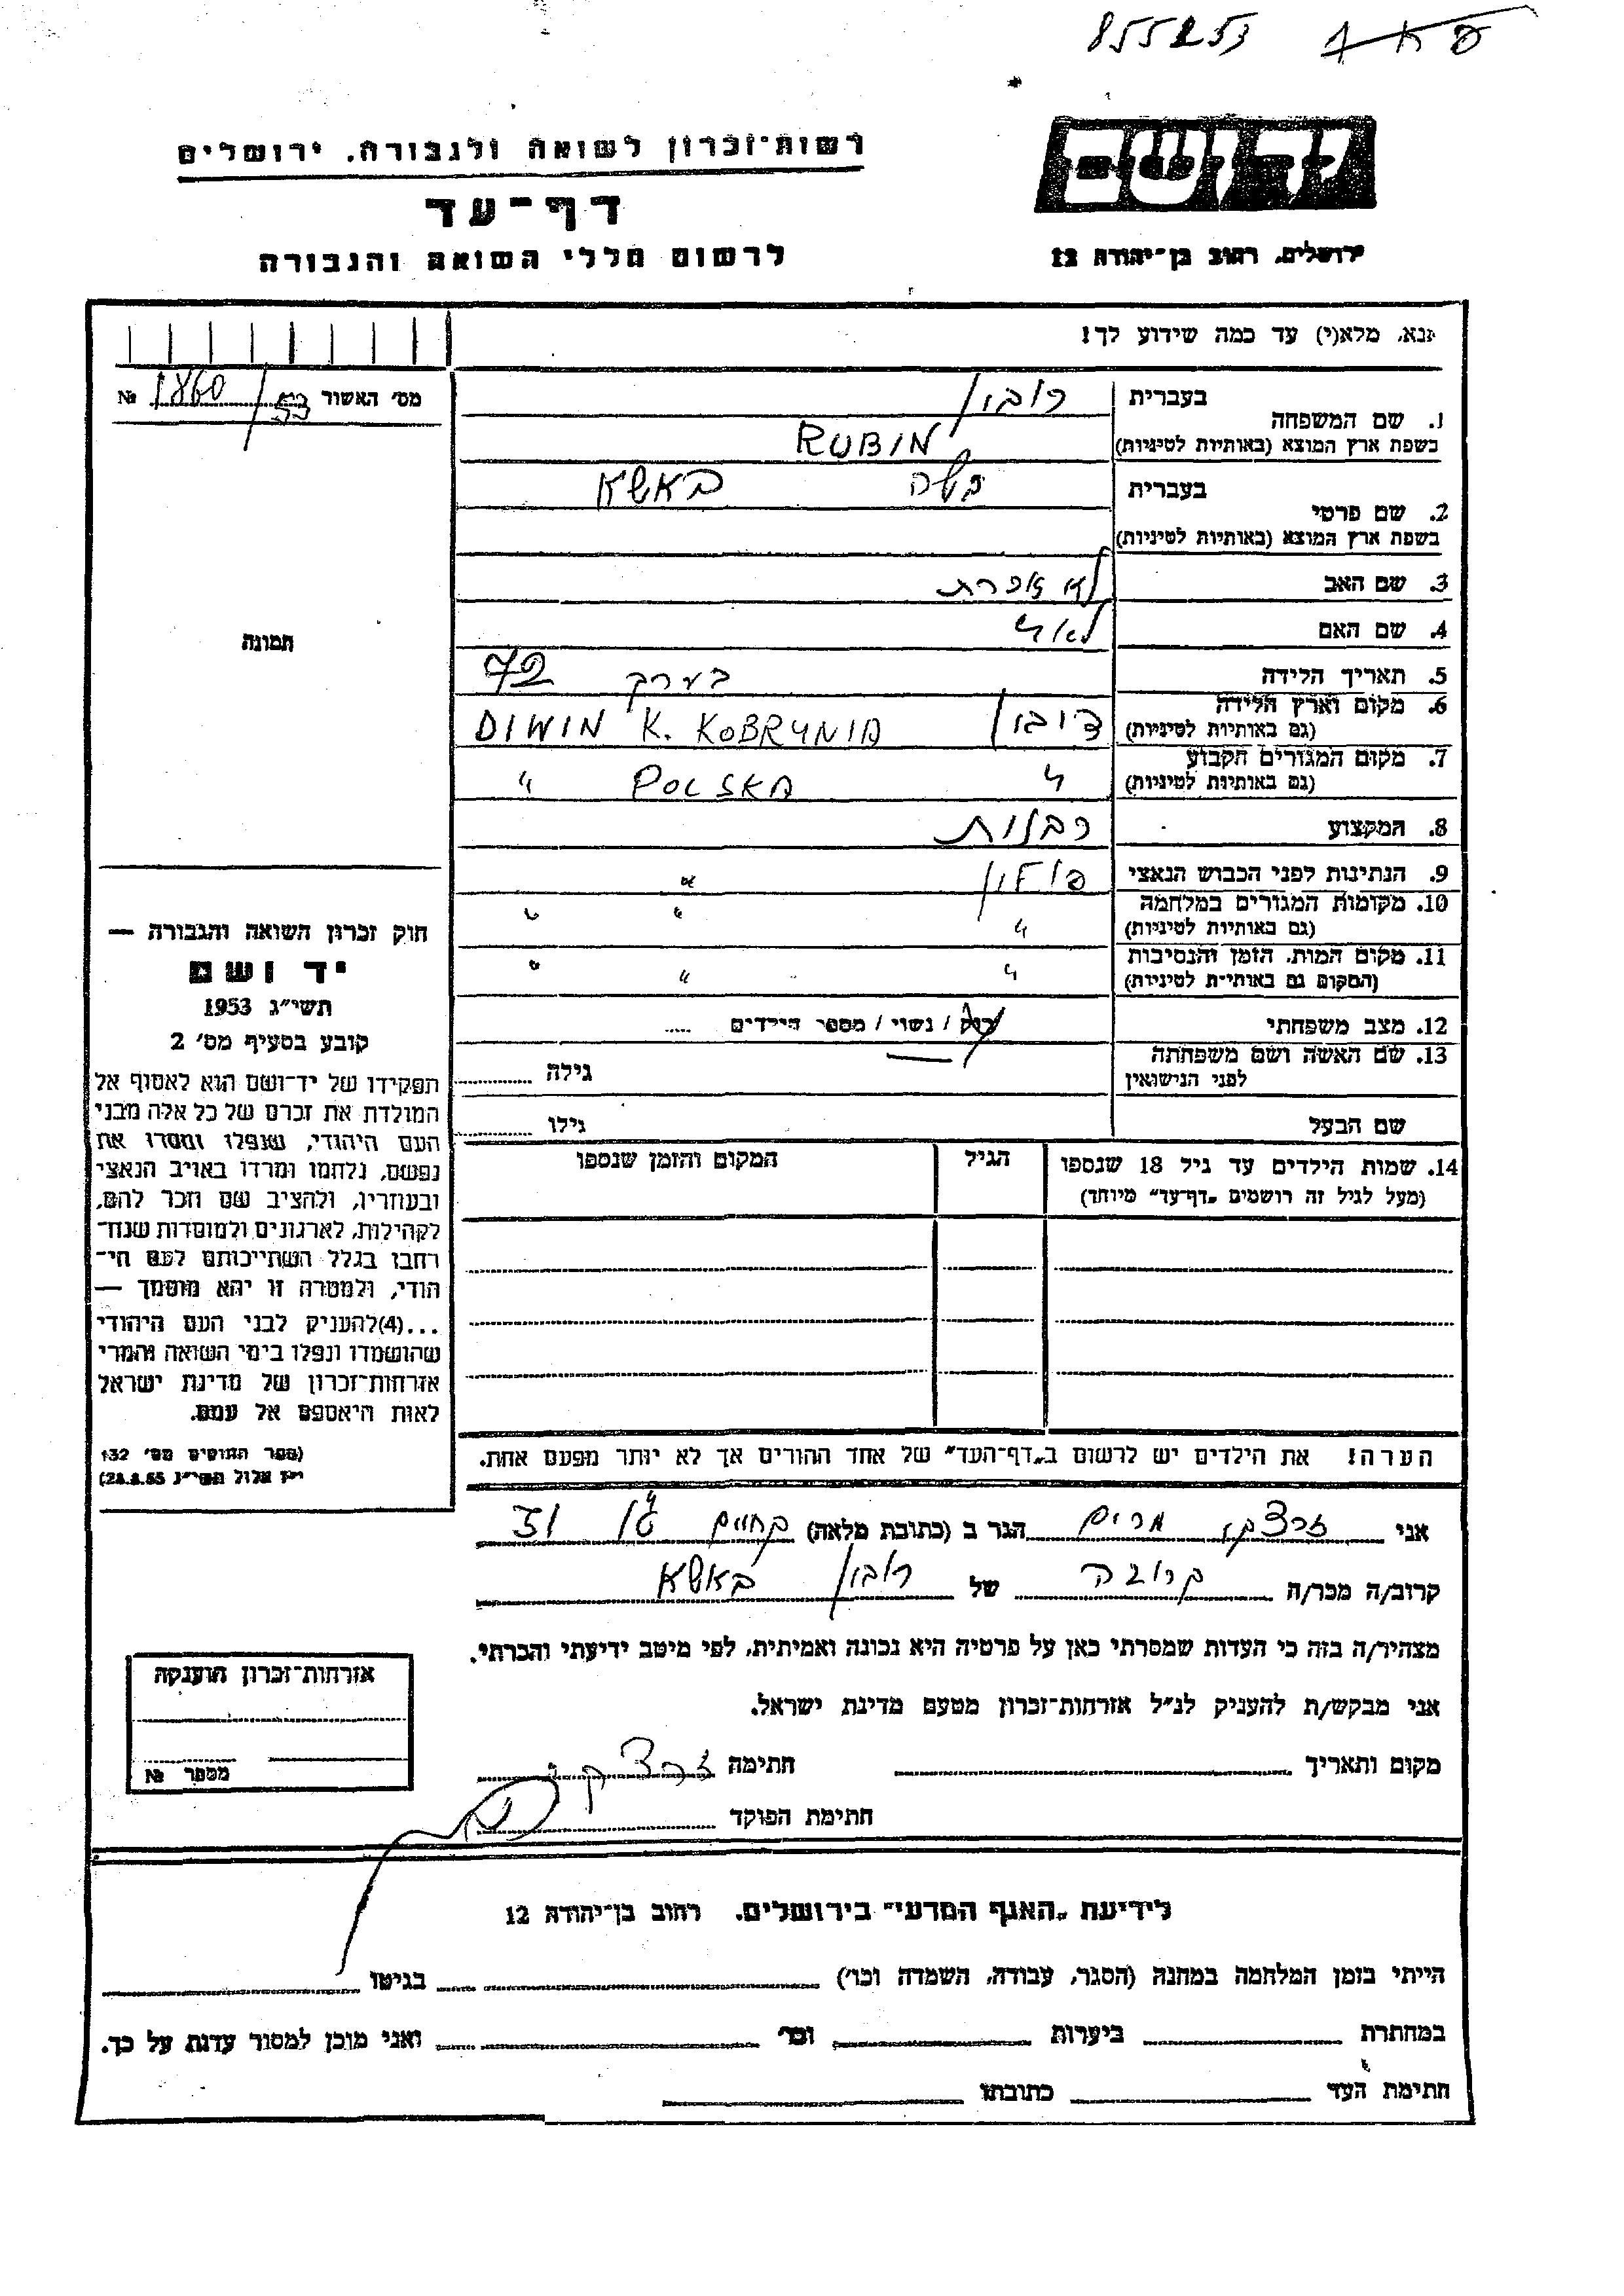 855253 פ א ק
יד ושם
רשות־זכרון לשואה ולגבורה, ירושלים
דף־עד
ירושלים, רחוב בן־יהודה 12
לרשום חללי השואה והגבורה
נא, מלא(י) עד כמה שידוע לך!
מס׳ האשור 1860/53 №
1. שם המשפחה
בעברית רובין
בשפת ארץ המוצא (באותיות לטיניות) RUBIN
2. שם פרטי
בעברית בשה באשא
בשפת ארץ המוצא (באותיות לטיניות)
3. שם האב לא זוכרת
4. שם האם לא "
תמונה
5. תאריך הלידה בערך 72
6. מקום וארץ הלידה
(גם באותיות לטיניות) דיבין DIWIN K. KOBRYNIA
7. מקום המגורים הקבוע
(גם באותיות לטיניות) " POLSKA "
8. המקצוע
9. הנתינות לפני הכבוש הנאצי פולין "
10. מקומות המגורים במלחמה
(גם באותיות לטיניות) " " "
11. מקום המות, הזמן והנסיבות
(המקום גם באותיות לטיניות) " " "
12. מצב משפחתי רוק / נשוי / מספר הילדים .....
13. שם האשה ושם משפחתה
לפני הנישואין גילה
שם הבעל גילו
14. שמות הילדים עד גיל 18 שנספו
(מעל לגיל זה רושמים „דף־עד” מיוחד)
הגיל
המקום והזמן שנספו
הערה! את הילדים יש לרשום ב„דף־העד” של אחד ההורים אך לא יותר מפעם אחת.
חוק זכרון השואה והגבורה —
יד ושם
תשי״ג 1953
קובע בסעיף מס׳ 2
תפקידו של יד־ושם הוא לאסוף אל
המולדת את זכרם של כל אלה מבני
העם היהודי, שנפלו ומסרו את
נפשם, נלחמו ומרדו באויב הנאצי
ובעוזריו, ולהציב שם וזכר להם,
לקהילות, לארגונים ולמוסדות שנח־
רבו בגלל השתייכותם לעם הי־
הודי, ולמטרה זו יהא מוסמך —
...(4)להעניק לבני העם היהודי
שהושמדו ונפלו בימי השואה והמרי
אזרחות־זכרון של מדינת ישראל
לאות היאספם אל עמם.
(ספר החוקים מס׳ 132
י״ז אלול תשי״ג 28.8.53)
אני זרצקי מרים הגר ב (כתובת מלאה)
קרוב/ה מכר/ה קרובה של רובין באשא
מצהיר/ה בזה כי העדות שמסרתי כאן על פרטיה היא נכונה ואמיתית, לפי מיטב ידיעתי והכרתי.
אני מבקש/ת להעניק לנ״ל אזרחות־זכרון מטעם מדינת ישראל.
מקום ותאריך חתימה זרצקי
חתימת הפוקד
אזרחות־זכרון הוענקה
מספר №
לידיעת „האגף המדעי” בירושלים, רחוב בן־יהודה 12
הייתי בזמן המלחמה במחנה (הסגר, עבודה, השמדה וכו׳) בגיטו
במחתרת ביערות וכו׳ ואני מוכן למסור עדות על כך.
חתימת העד כתובתו